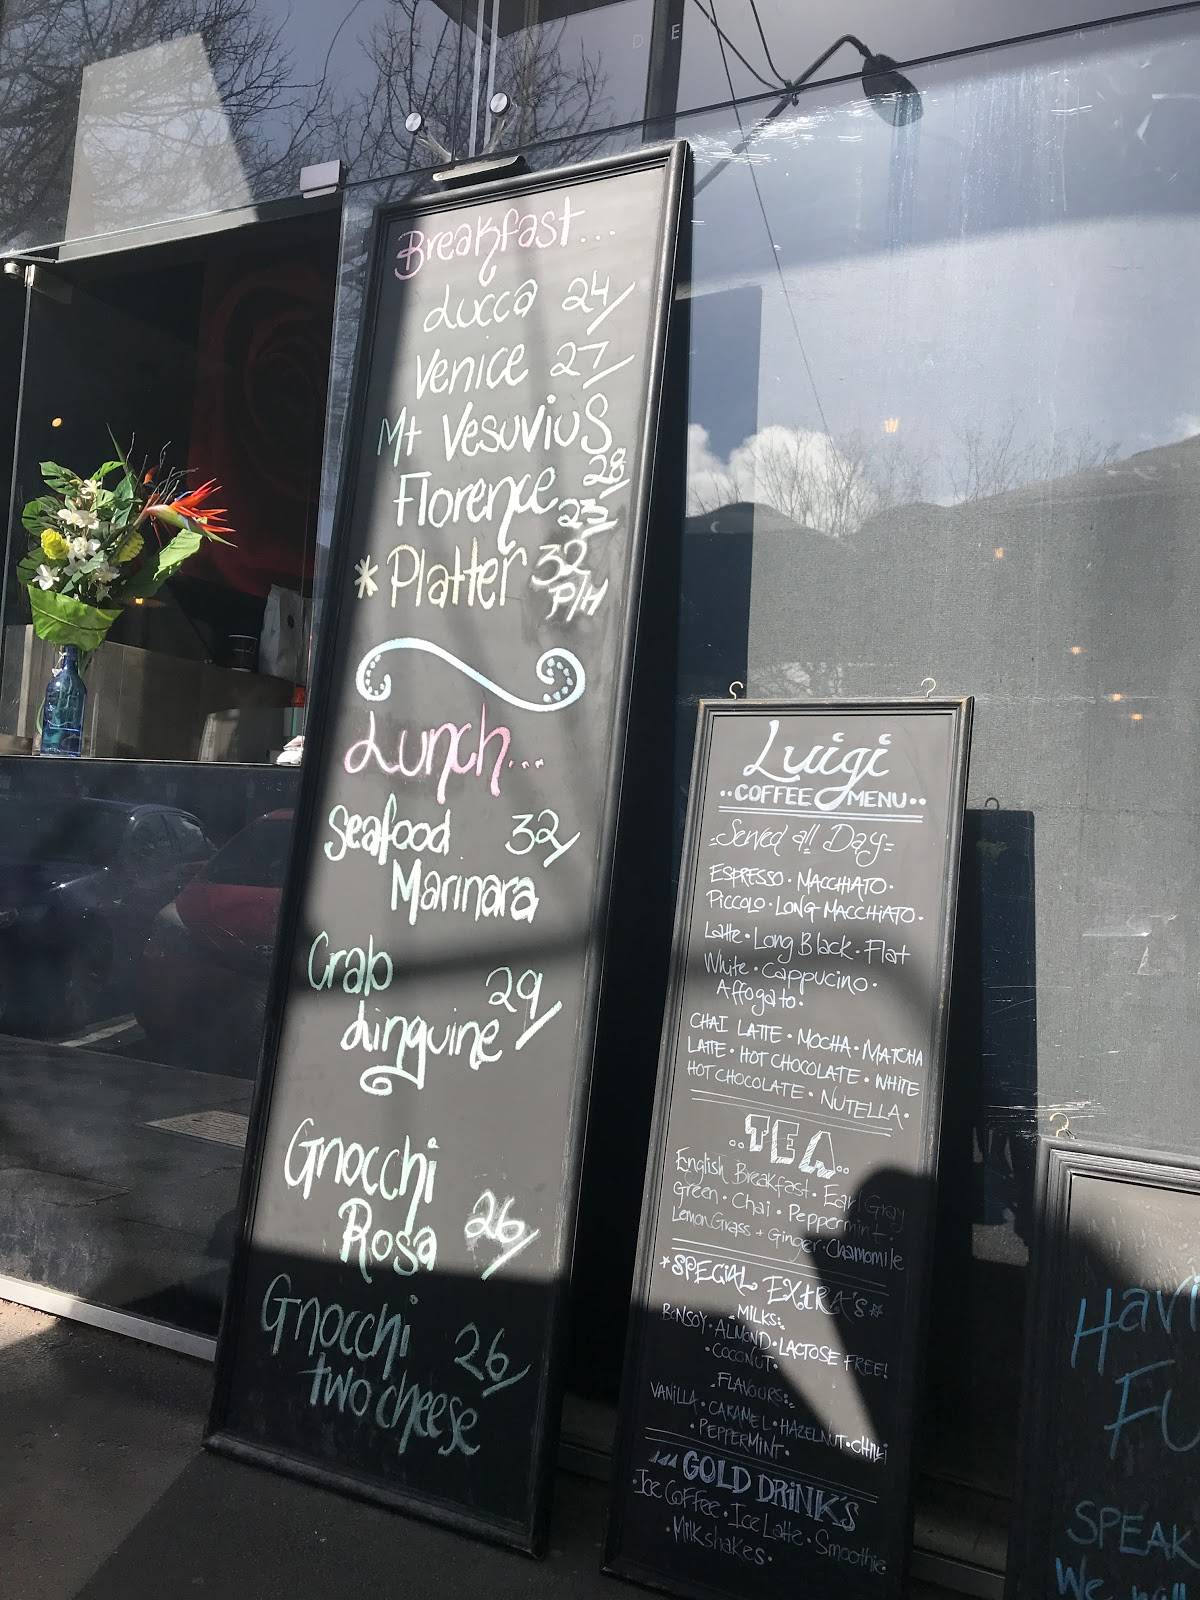 D E
Breakfast...
Lucca 24/
Venice 27/
Mt Vesuvius
28/
Florence
23/
*Platter 32
P/H
Lunch...
Seafood 32/
Marinara
Crab 29/
Linguine
Gnocchi
Rosa 26/
Gnocchi 26/
two cheese
Luigi
..COFFEE MENU..
=Served all Day=
ESPRESSO · MACCHIATO ·
PICCOLO · LONG MACCHIATO ·
Latte · Long Black · Flat
White · Cappucino ·
Affogato ·
CHAI LATTE · MOCHA · MATCHA
LATTE · HOT CHOCOLATE · WHITE
HOT CHOCOLATE · NUTELLA ·
..TEA..
English Breakfast · Earl Gray
Green · Chai · Peppermint ·
Lemon Grass + Ginger · Chamomile
*SPECIAL EXtRA'S*
MILKS:
BONSOY · ALMOND · LACTOSE FREE!
· COCONUT ·
FLAVOURS:
VANILLA · CARAMEL · HAZELNUT · CHILI
· PEPPERMINT ·
COLD DRiNK'S
· Ice Coffee · Ice Latte · Smoothie
· Milkshakes ·
Havi
Fu
SPEAK
We will